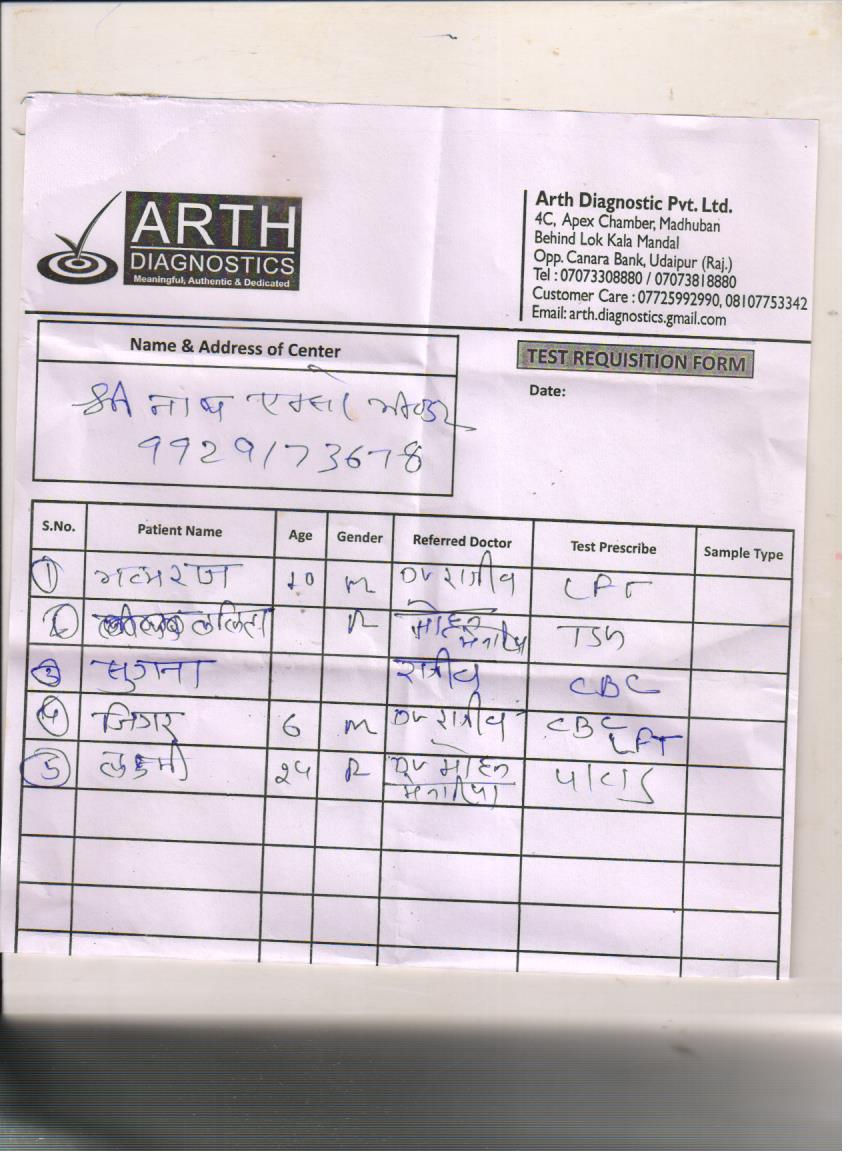 ARTH
DIAGNOSTICS
Meaningful, Authentic & Dedicated
Arth Diagnostic Pvt. Ltd.
4C, Apex Chamber, Madhuban
Behind Lok Kala Mandal
Opp. Canara Bank, Udaipur (Raj.)
Tel : 07073308880 / 07073818880
Customer Care : 07725992990, 08107753342
Email: arth.diagnostics.gmail.com
Name & Address of Center
TEST REQUISITION FORM
Date:
श्री नाथ
9929173678
S.No. Patient Name Age Gender Referred Doctor Test Prescribe Sample Type
1 M Dr राजीव
2 ललिता मोहन TSH
3 सुगना राजीव CBC
4 जिगर 6 M Dr राजीव CBC
5 लक्ष्मी 24 Dr मोहन